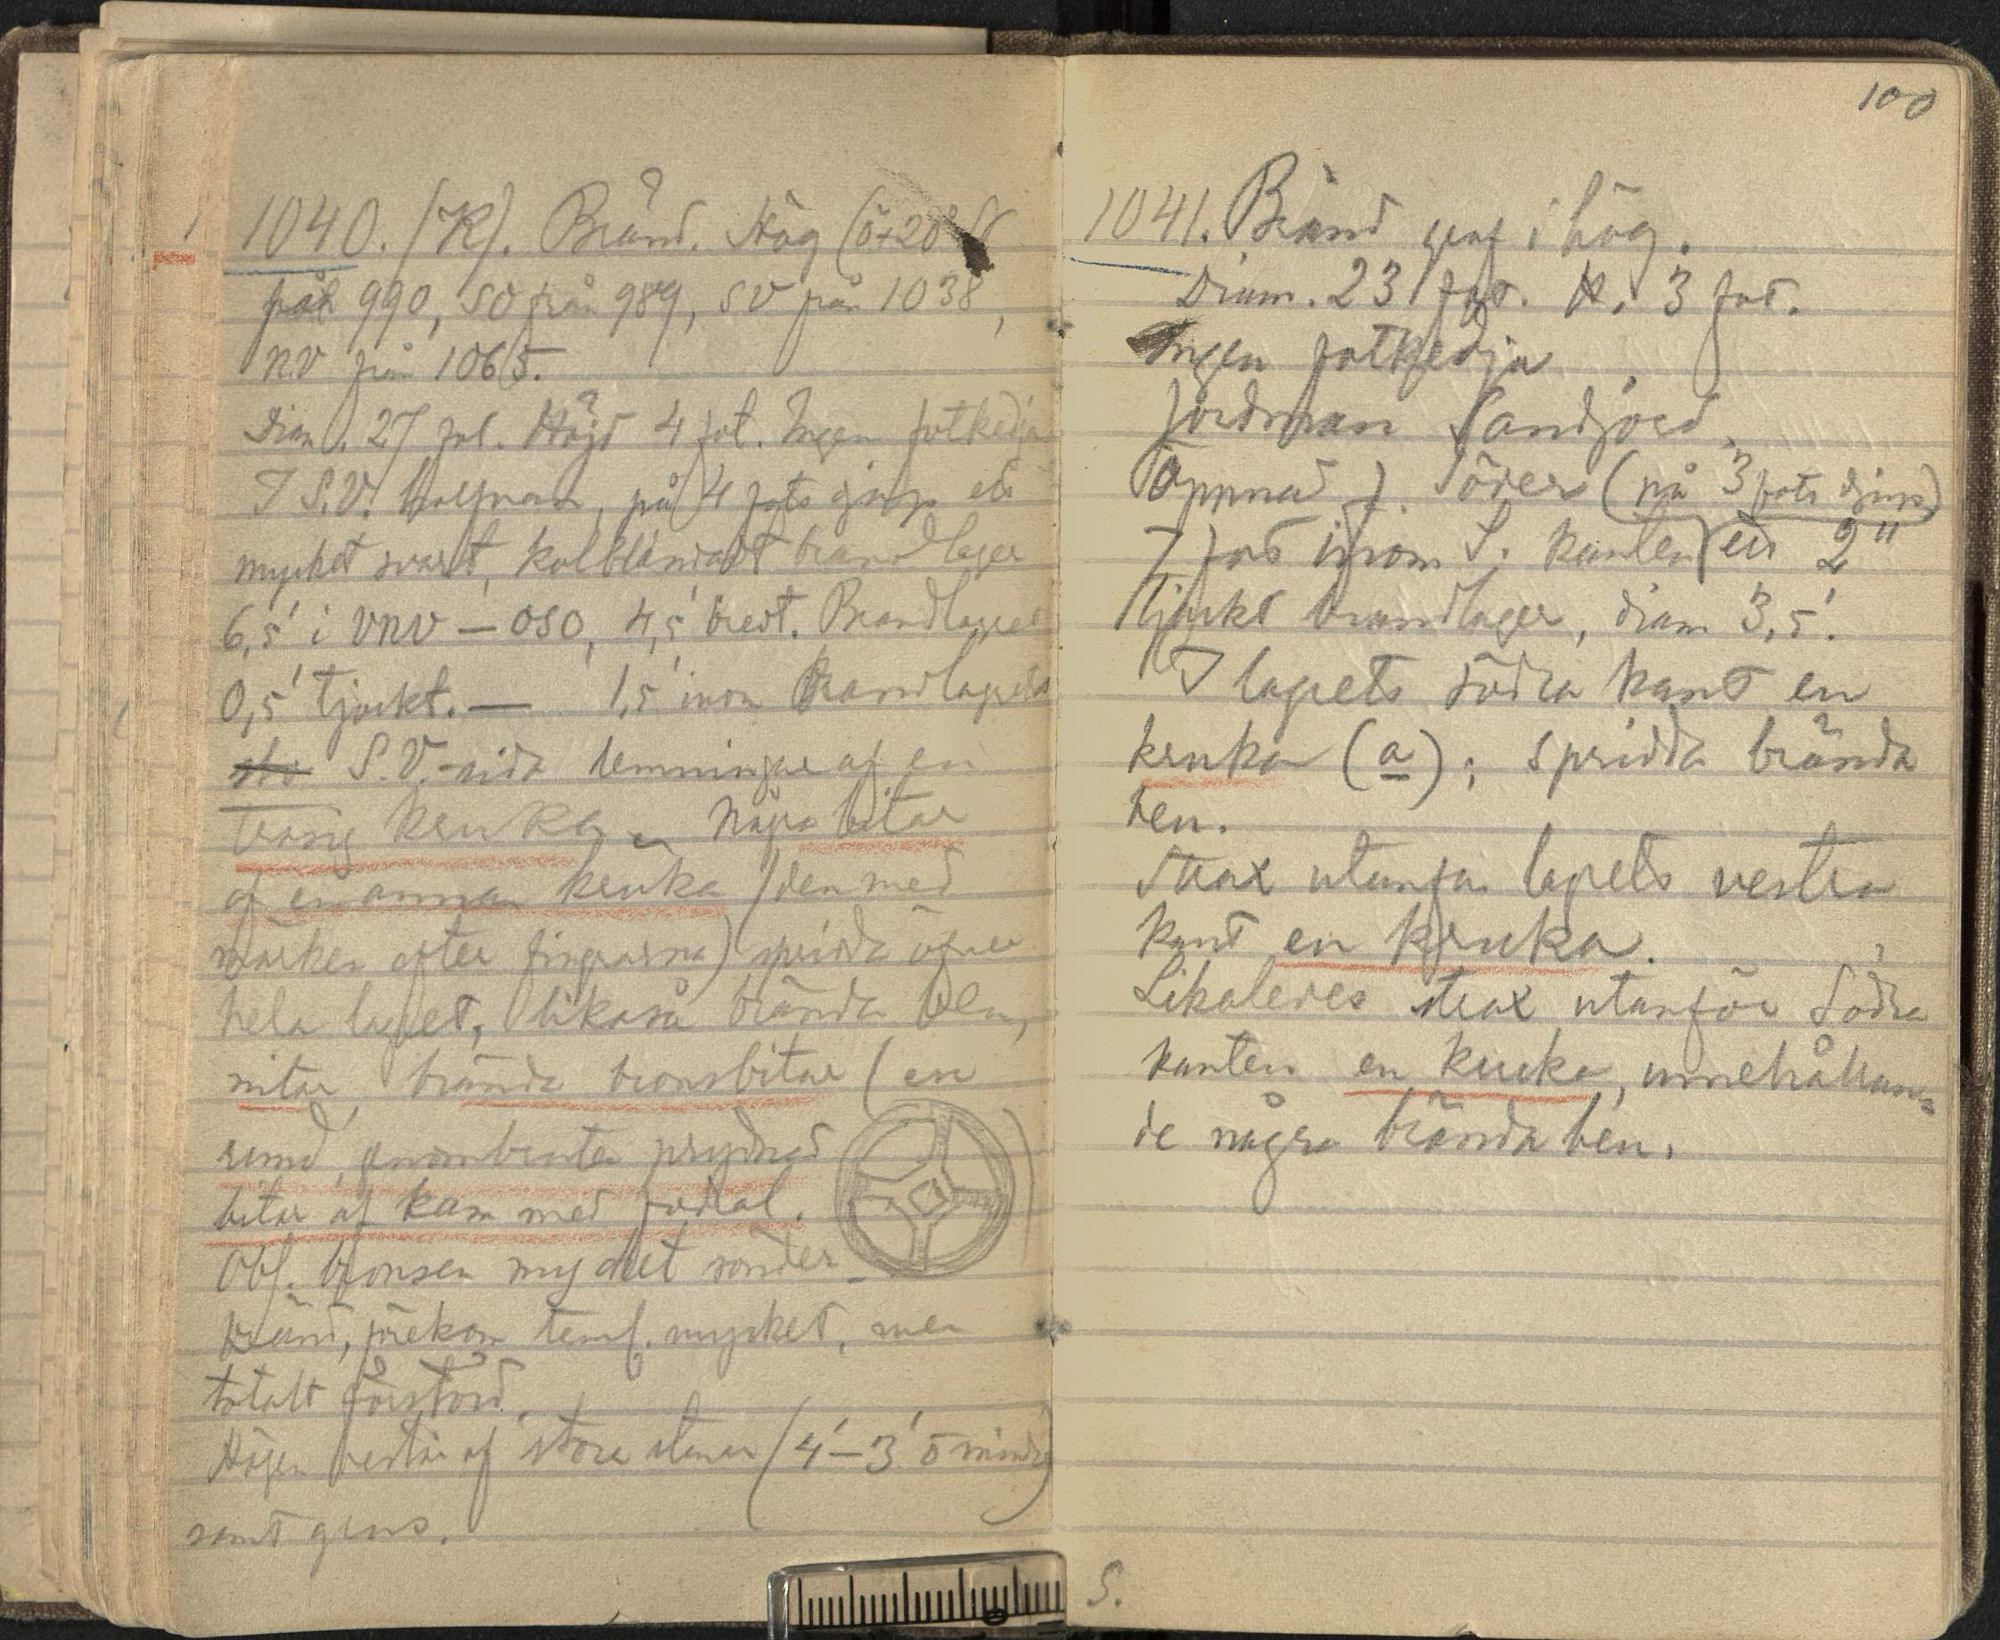 1040. (K). Bränd. Hög (Ö+20°N
från 990, SO från 989, SV från 1038,
NV från 1065.
Diam. 27 fot. Höjd 4 fot. Ingen fotkedja
I S.V. halfvan, på 4 fots djup ett
mycket svart, kolblandadt brandlager
6,5' i VNV – OSO, 4,5' bredt. Brandlagret
0,5' tjockt. — 1,5' inom Brandlagrets
S.V.-sida lemningar af en
trasig kruka, några bitar
af en annan kruka (den med
märken efter fingrarna) spridda öfver
hela lagret, likaså brända ben,
nitar, brända bronsbitar (en
rund, genombruten prydnad )
bitar af kam med fodral.
Obs. bronsen mycket sönder-
bränd, förekom teml. mycket, men
totalt förstörd.
Högen består af stora stenar (4'–3' o mindre)
samt grus.
100
1041. Bränd graf i hög.
Diam. 23 fot. H. 3 fot.
Ingen fotkedja
Jordman Sandjord.
Öppnad f. Söder (på 3 fots djup)
7 fot inom S. kanten ett 2"
tjockt brandlager, diam 3,5'.
I lagrets södra kant en
kruka (a); spridda brända
ben.
Strax utanför lagrets vestra
kant en kruka.
Likaledes strax utanför södra
kanten en kruka, innehållan=
de några brända ben.
S.